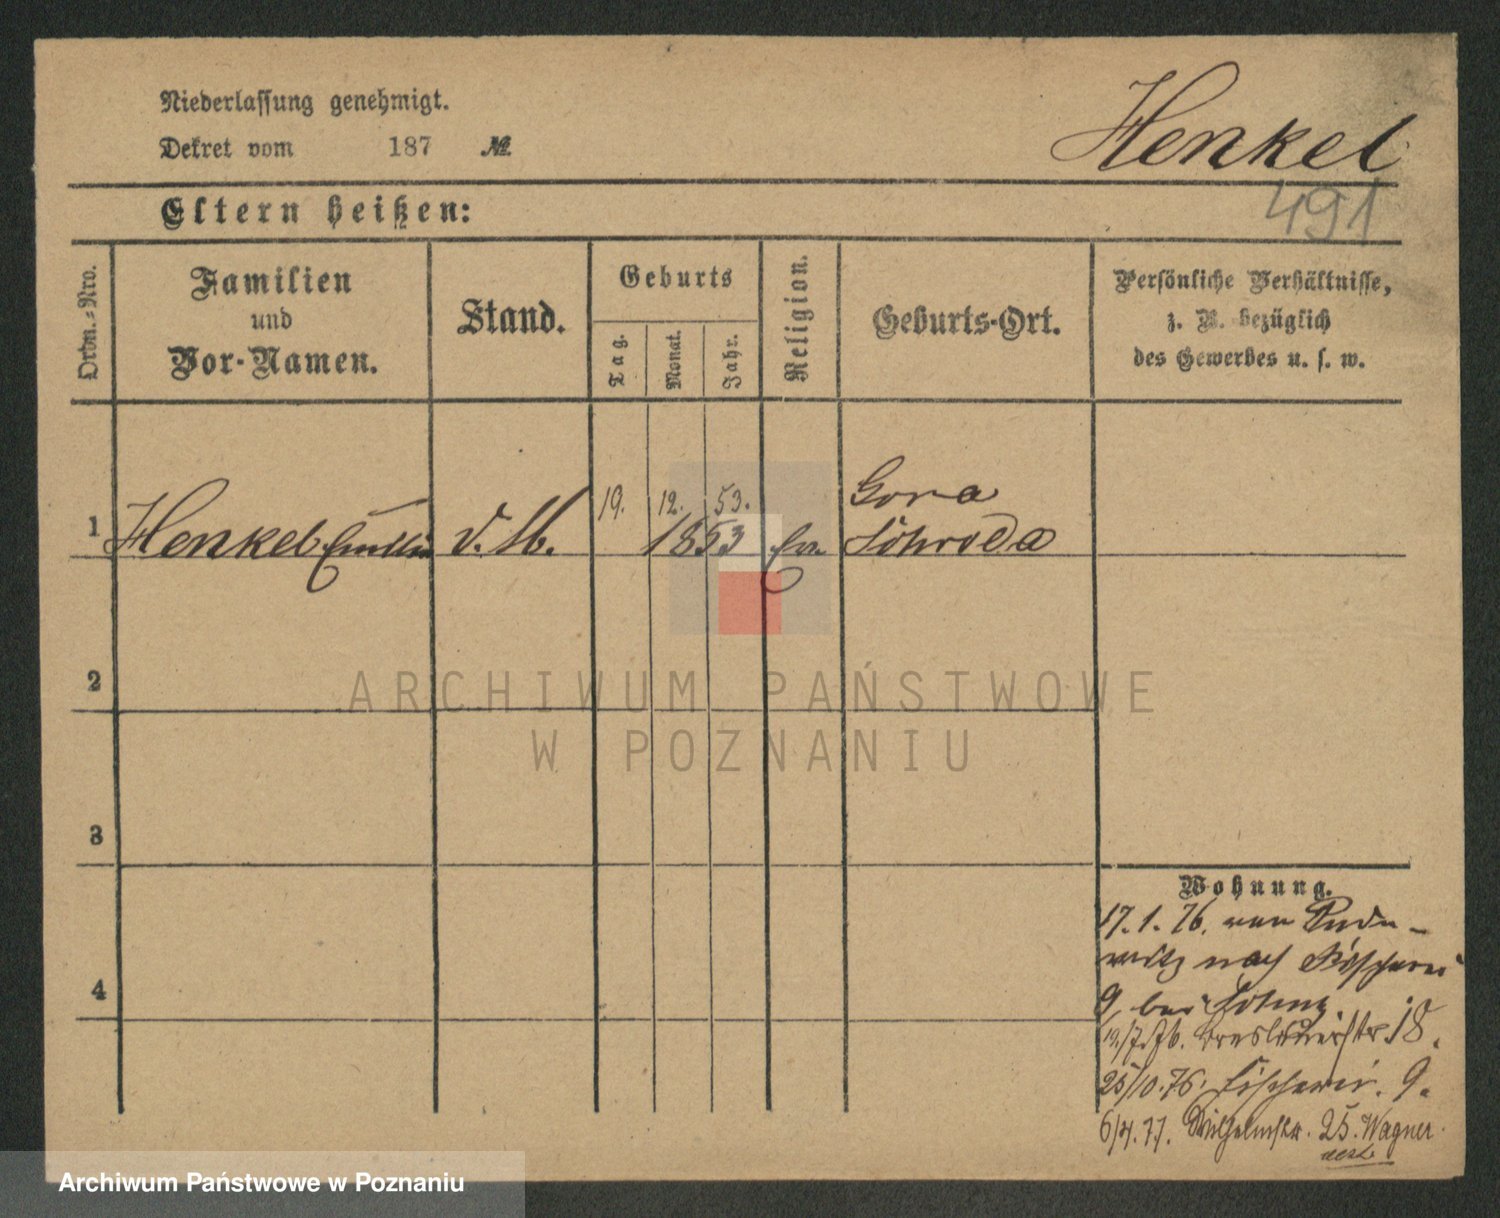 Niederlassung genehmigt.
Dekret vom 187 №
Henkel
491
Eltern heißen:
Ordn.-Nro.
Familien
und
Vor-Namen.
Stand.
Geburts
Tag.
Monat.
Jahr.
Religion.
Geburts-Ort.
Persönliche Verhältnisse,
z. B. bezüglich
des Gewerbes u. s. w.
19. 12. 53. Gora
1 Henkel d. M. 1853 Schroda
2
ARCHIWUM PAŃSTWOWE
W POZNANIU
3
Wohnung.
17. 1. 76. von Pude-
witz nach Fischerei
9, bei
19/7. 76. Breslauerstr. 18.
4
25/10. 76. Fischerei. 9.
6/4. 77. Wilhelmstr. 25. Wagner.
Archiwum Państwowe w Poznaniu